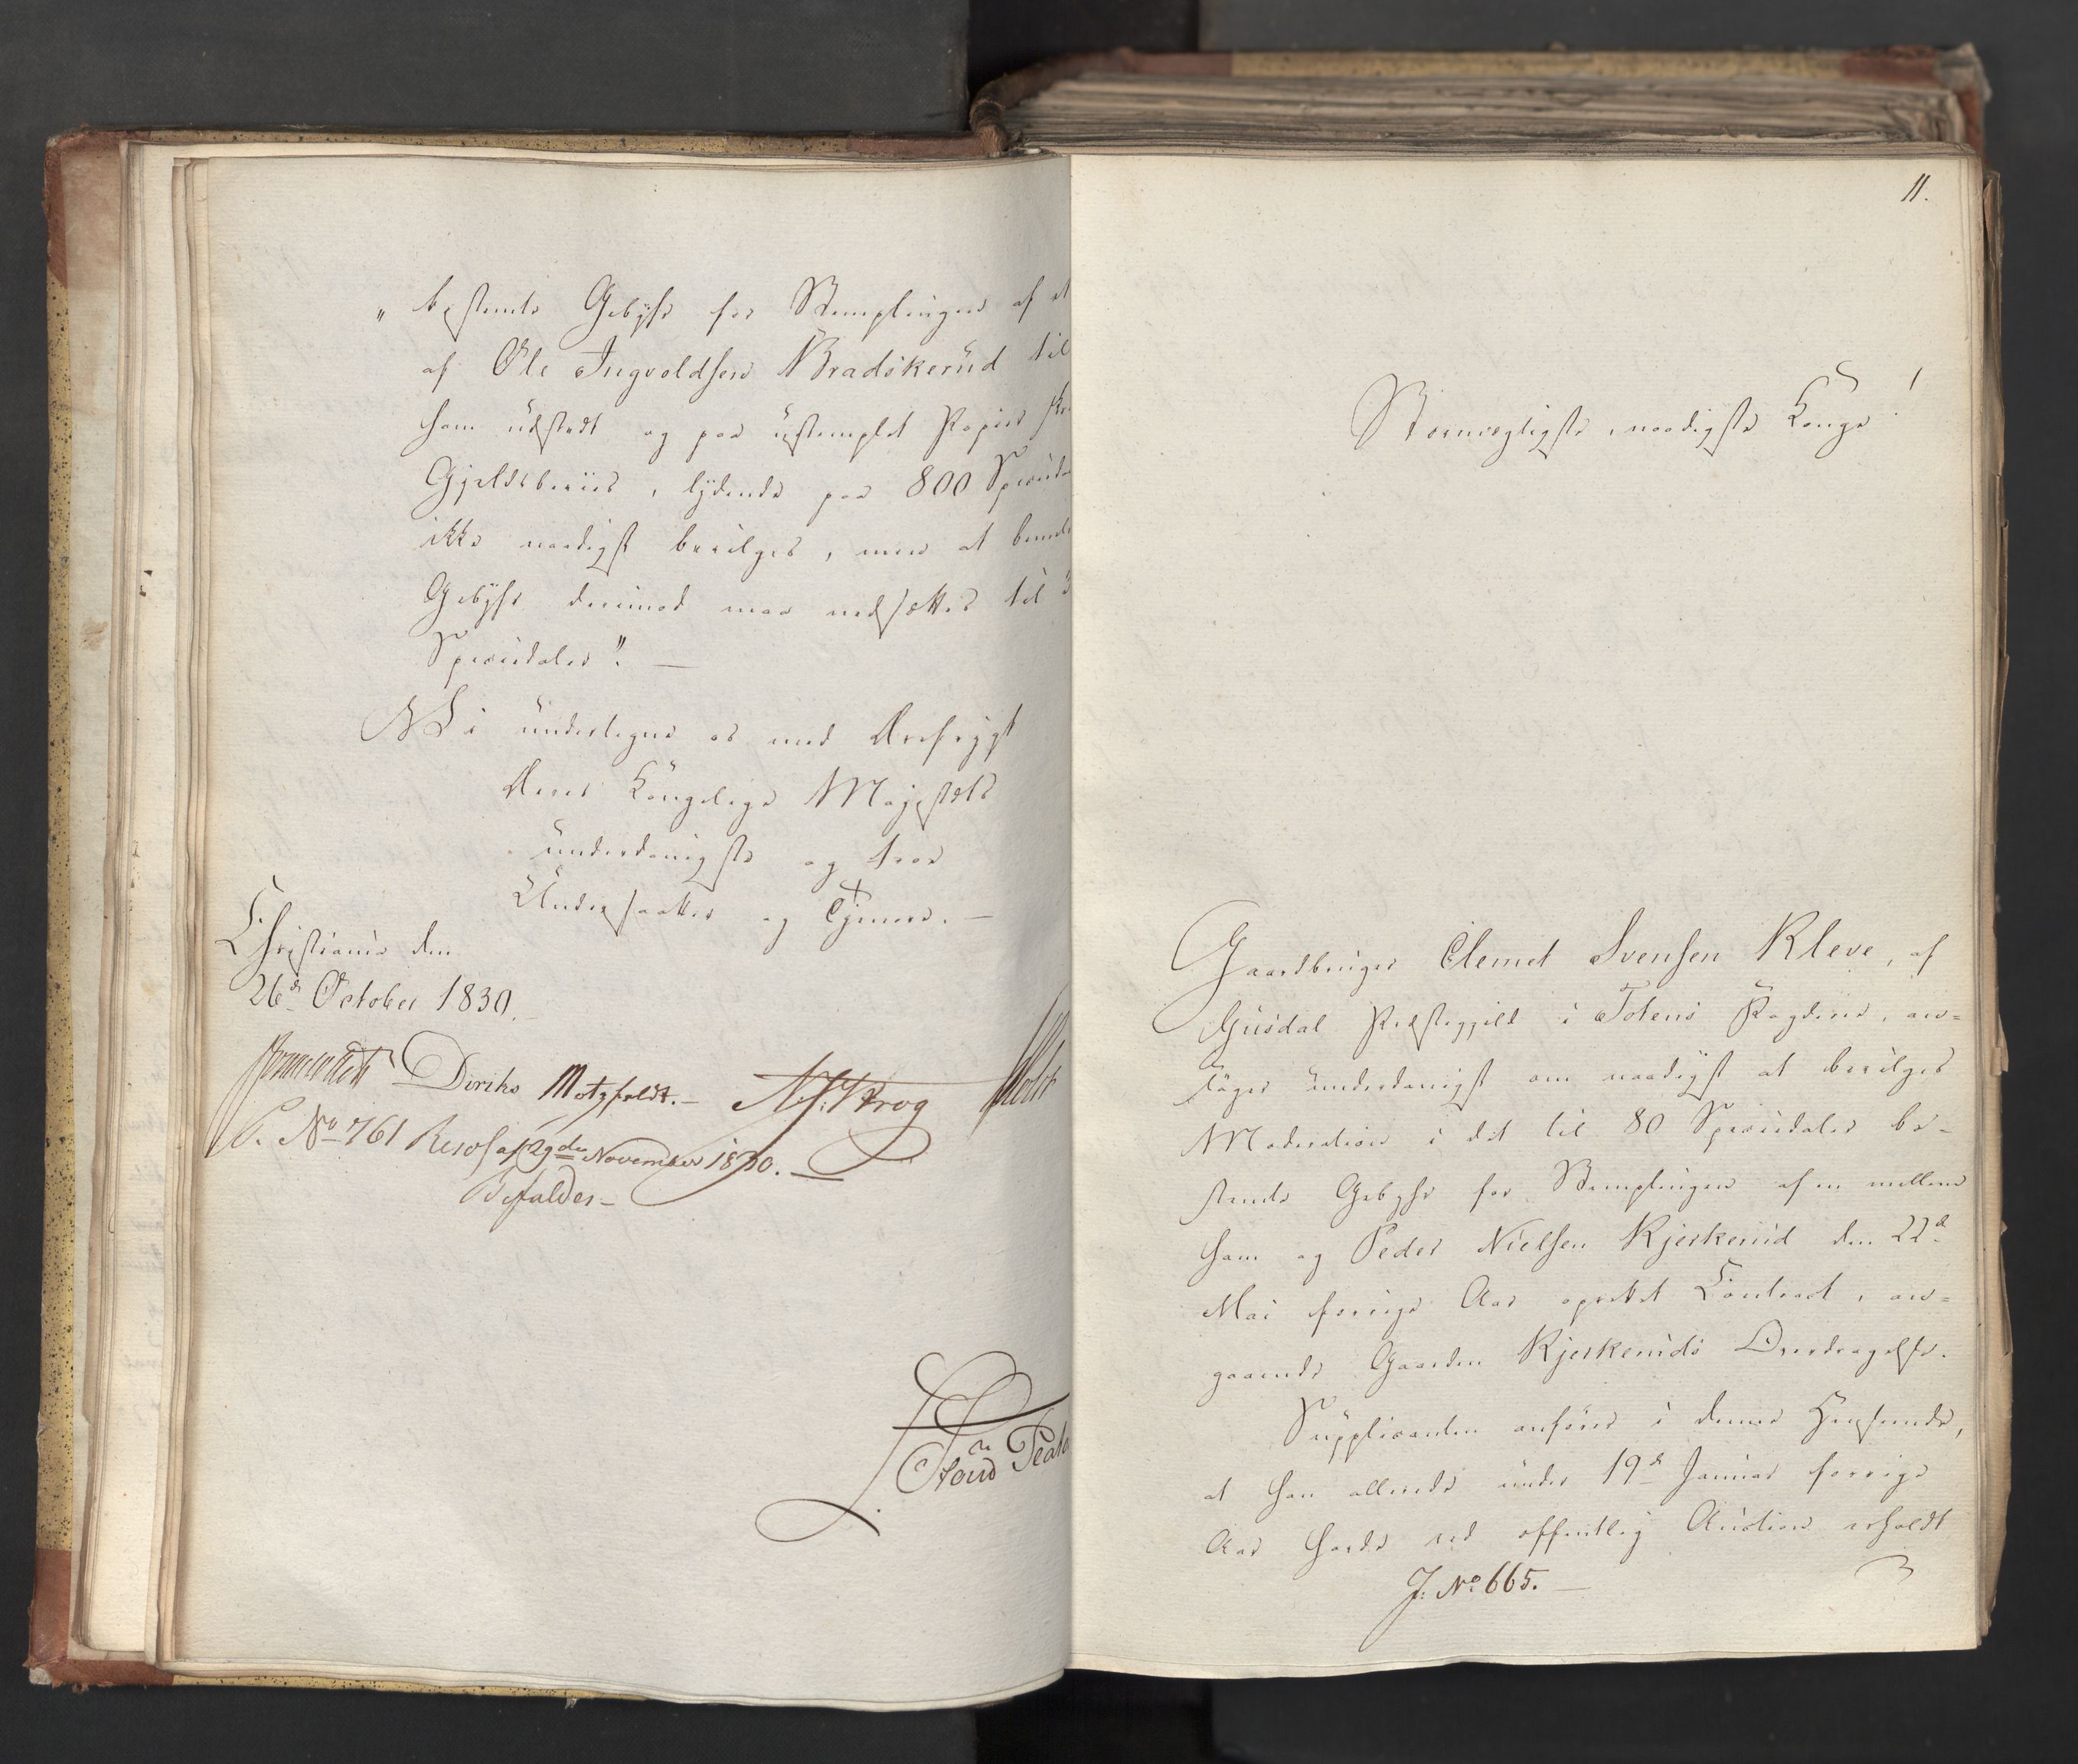 " bestemte Gebyhr for Stemplingen af et
af Ole Ingvoldsen Bradskerud til
ham udstedt og paa ustemplet Papir
Gjeldsbeviis, lydende paa 800 Speciedaler
ikke naadigst bevilges, men at
Gebyhr derimod maa nedsættes til
Speciedaler". —
Vi undertegne os med Ærefrygt
Deres Kongelige Majestæts
underdanigste og troe
Undersaatter og Tjenere. —
Christiania den
26de October 1830.
Diriks Motzfeldt. — Krog Holst
P. No 761 Resol. af 29de November 1830. —
Bifaldes —
11.
Stormægtigste, naadigste Konge!
Gaardbruger Clemet Svensen Kleve, af
Gusdal Præstegjeld i Totens Fogderie, an=
søger underdanigst om naadigst at bevilges
Moderation i det til 80 Speciedaler be-
stemte Gebyhr for Stemplingen af en mellem
ham og Peder Nielsen Kjerkerud den 22de
Mai forrige Aar oprettet Contract, an=
gaaende Gaarden Kjerkeruds Overdragelse.
Supplicanten anfører i denne Henseende,
at han allerede under 19de Januar forrige
Aar havde ved offentlig Auction erholdt
J. No 665. —